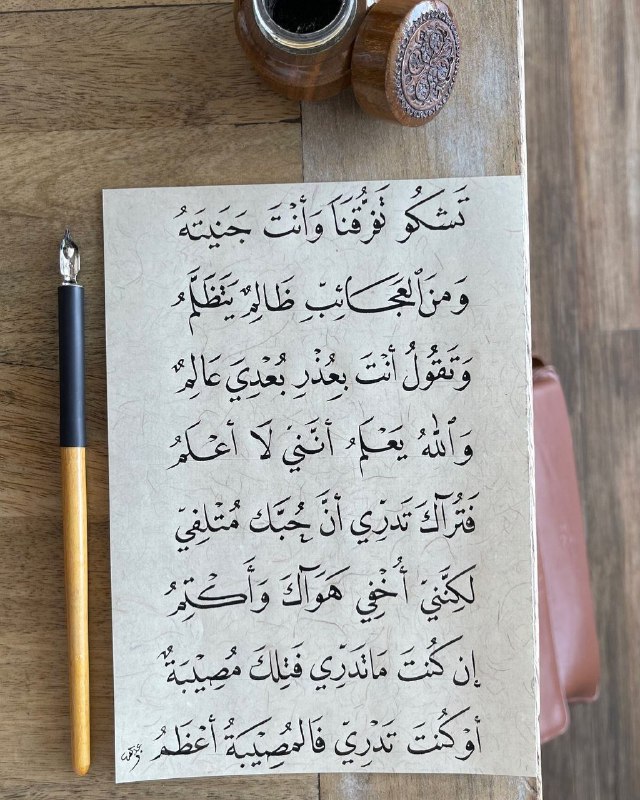 تَشكُو تَفَرُّقَنَا وَأنْتَ جَنَيتَهُ
وَمِنَ ٱلعَجَائِبِ ظَالِمٌ يَتَظَلَّمُ
وَتَقُولُ أنْتَ بِعُذْرِ بُعْدِيَ عَالِمٌ
وَٱللهُ يَعْلَمُ أنَّنِي لَا أعْلَمُ
فَتُرَآكَ تَدْرِي أنَّ حُبَّكَ مُتْلِفِي
لَكِنَّنِي أُخْفِي هَوَآكَ وَأَكْتِمُ
إن كُنْتَ مَاتَدْرِي فَتِلكَ مُصِيْبَةٌ
أوكُنْتَ تَدْرِي فَالمُصِيْبَةُ أعْظَمُ